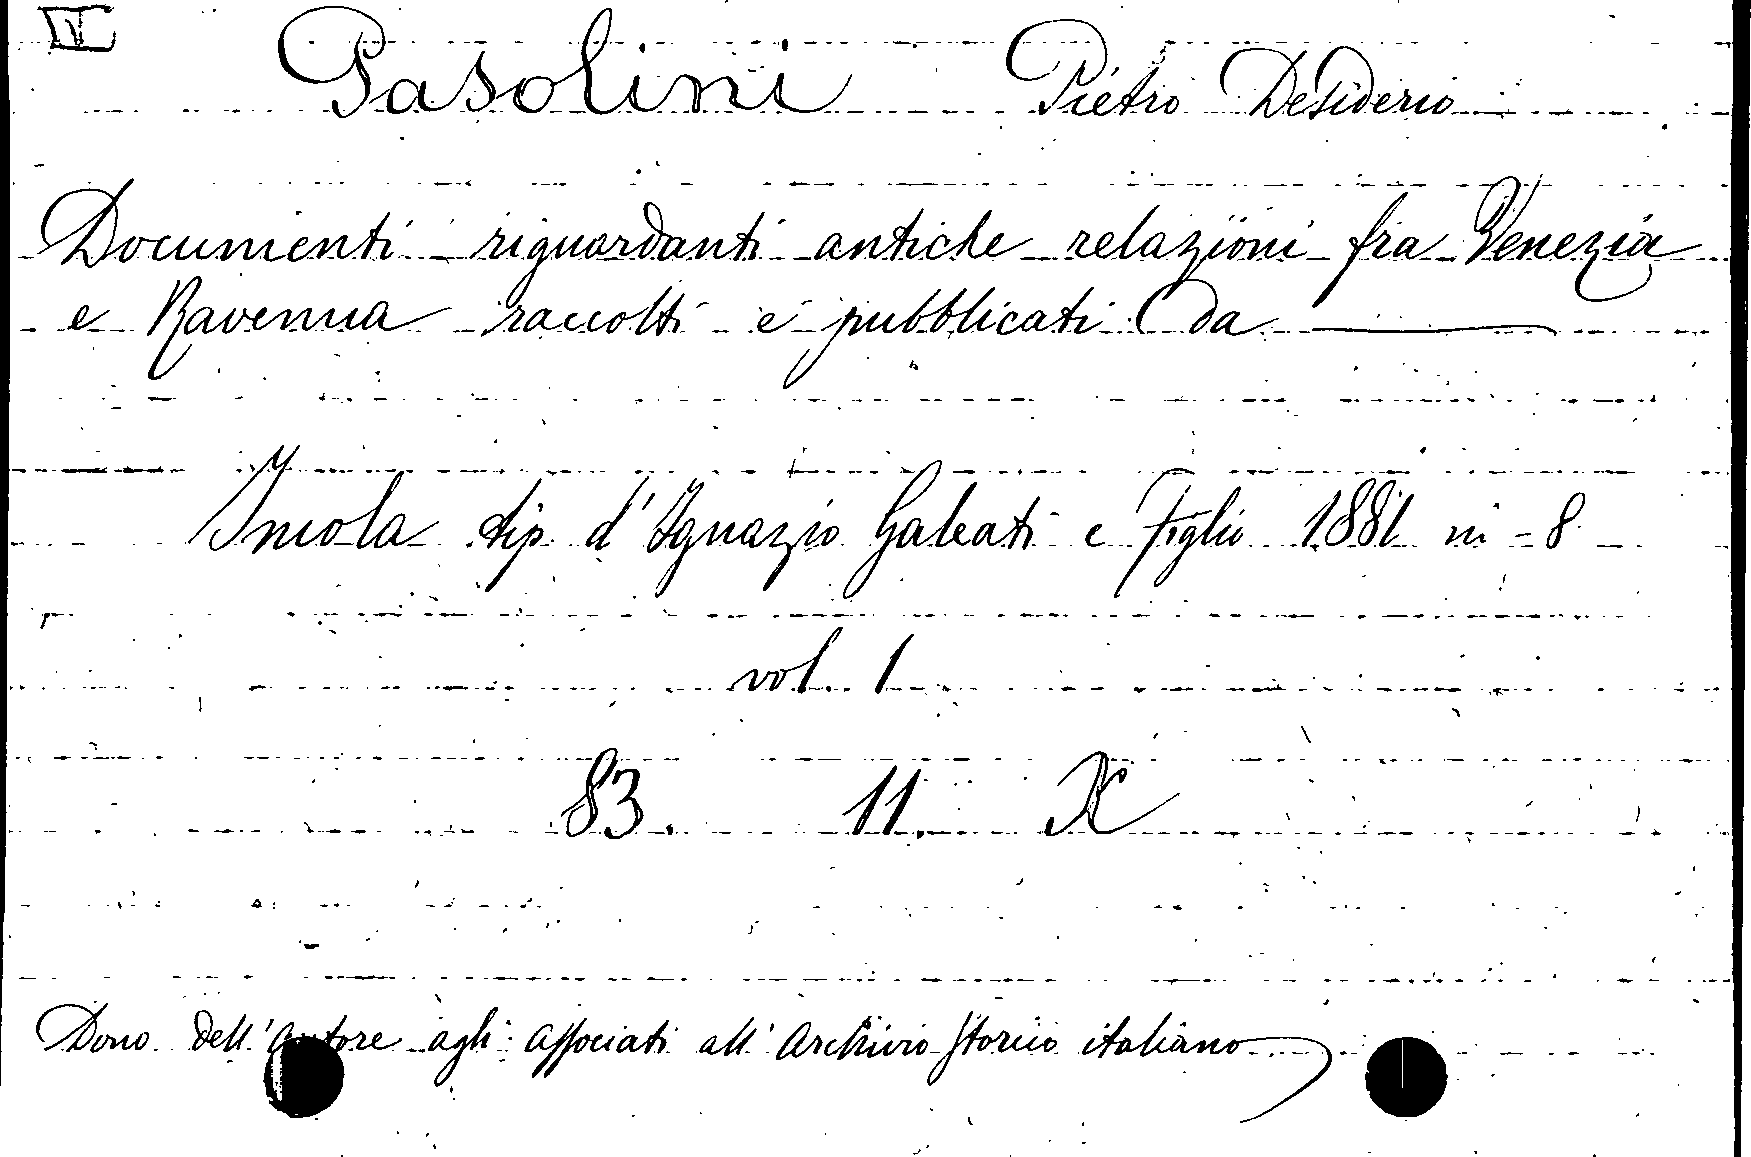 VI
Pasolini Pietro Desiderio
Documenti riguardanti antiche relazioni fra Venezia
e Ravenna raccolti e pubblicati da ———
Imola tip. d'Ignazio Galeati e Figlio 1881 in-8
vol. 1
83. 11. K
Dono dell'autore agli associati all'Archivio storico italiano